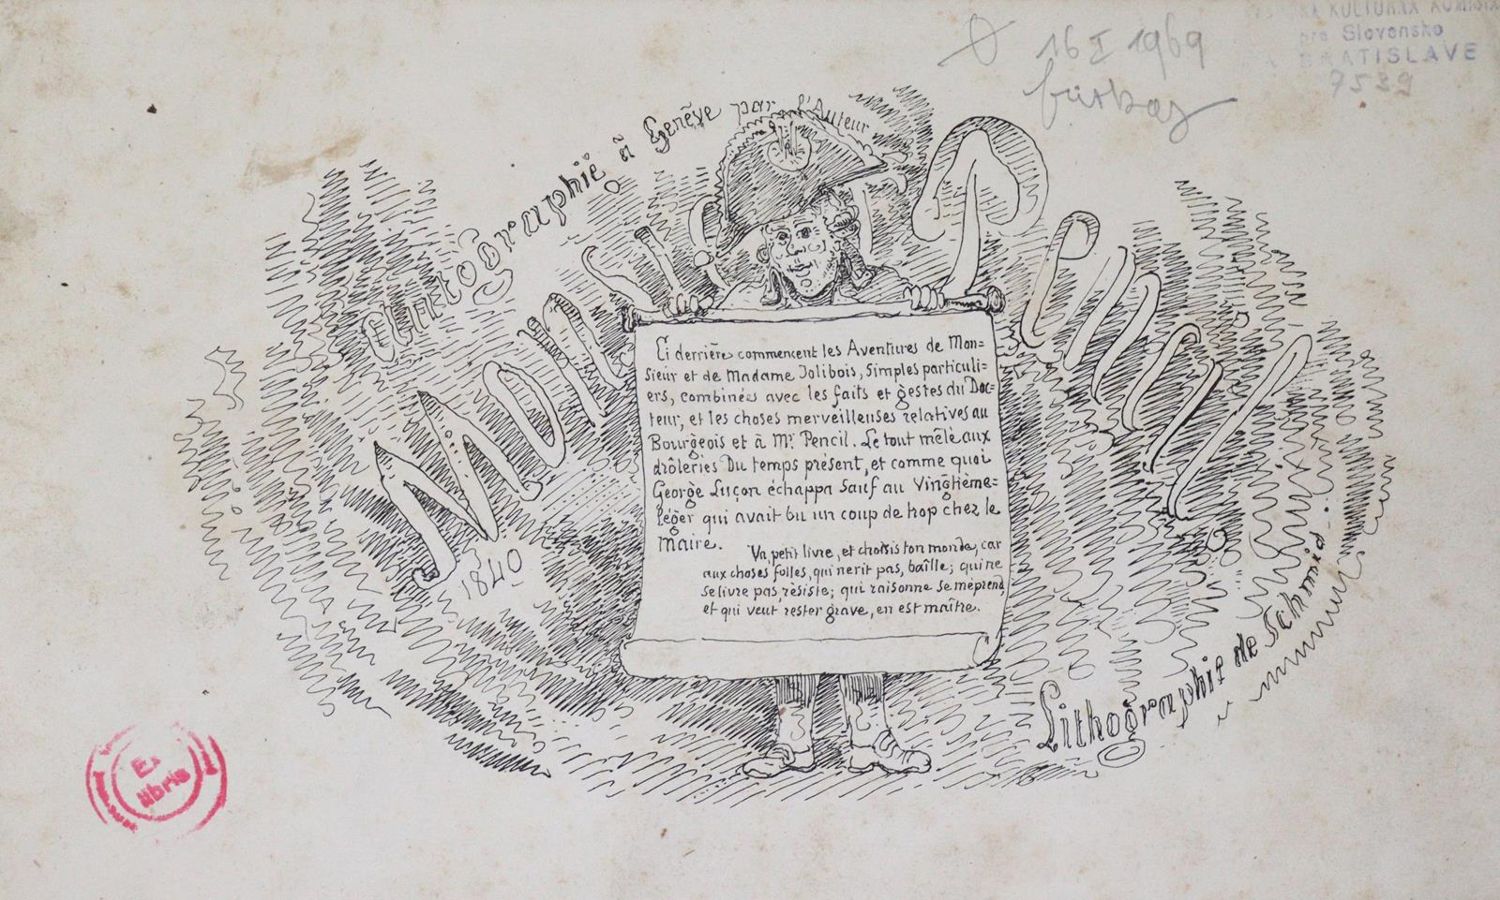 16 I 1969
pre Slovensko
BRATISLAVE
7539
Autographié à Genève par l'Auteur
Monsieur Pencil
1840
Ci derrière commencent les Aventures de Mon=
sieur et de Madame Jolibois, simples particuli=
ers, combinées avec les faits et gestes du Doc=
teur, et les choses merveilleuses relatives au
Bourgeois et à Mr. Pencil. Le tout mêlé aux
drôleries Du temps présent, et comme quoi
George Luçon échappa sauf au Vingtième=
léger qui avait bu un coup de trop chez le
Maire.
Va petit livre, et choisis ton monde, car
aux choses folles, qui ne rit pas, baîlle; qui ne
se livre pas, résiste; qui raisonne se méprend
et qui veut rester grave, en est maître.
Lithographie de Schmid
Ex
libris